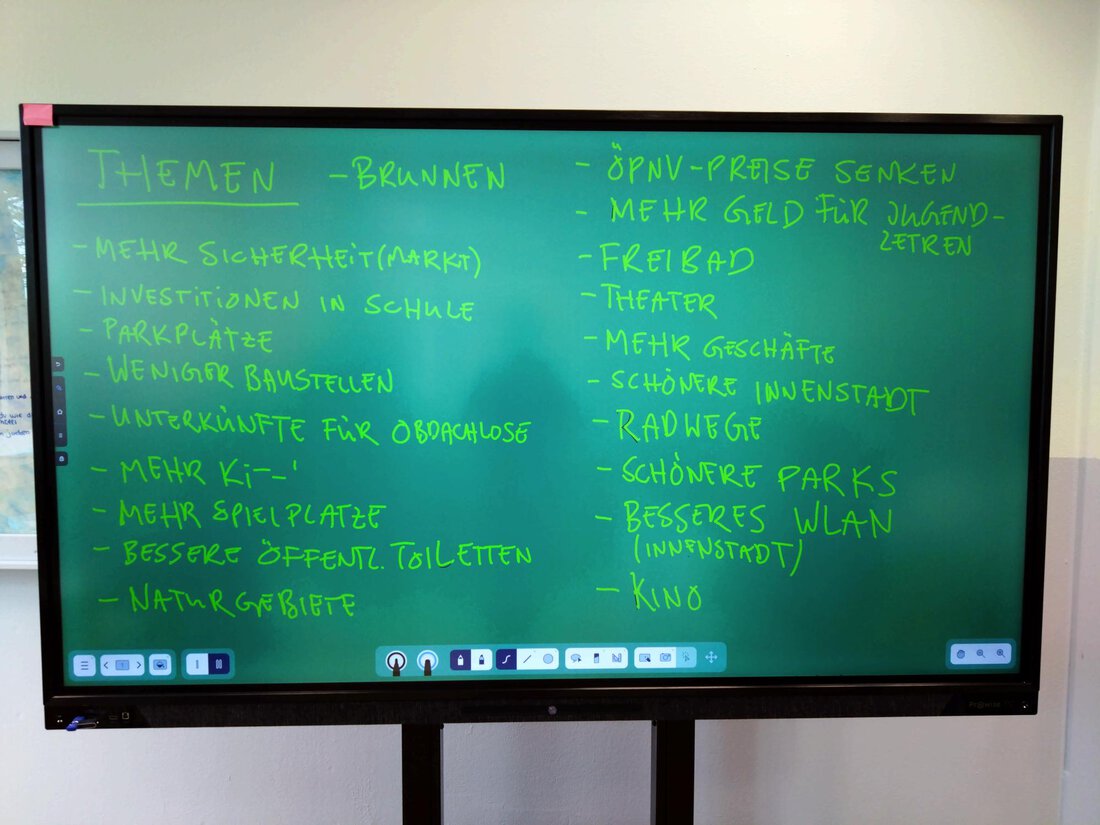 THEMEN
- BRUNNEN
- MEHR SICHERHEIT (MARKT)
- INVESTITIONEN IN SCHULE
- PARKPLÄTZE
- WENIGER BAUSTELLEN
- UNTERKÜNFTE FÜR OBDACHLOSE
- MEHR Ki-'
- MEHR SPIELPLATZE
- BESSERE ÖFFENTL. TOILETTEN
- NATURGEBIETE
- ÖPNV-PREISE SENKEN
- MEHR GELD FÜR JUGEND-
ZETREN
- FREIBAD
- THEATER
- MEHR GESCHÄFTE
- SCHÖNERE INNENSTADT
- RADWEGE
- SCHÖNERE PARKS
- BESSERES WLAN
(INNENSTADT)
- KINO